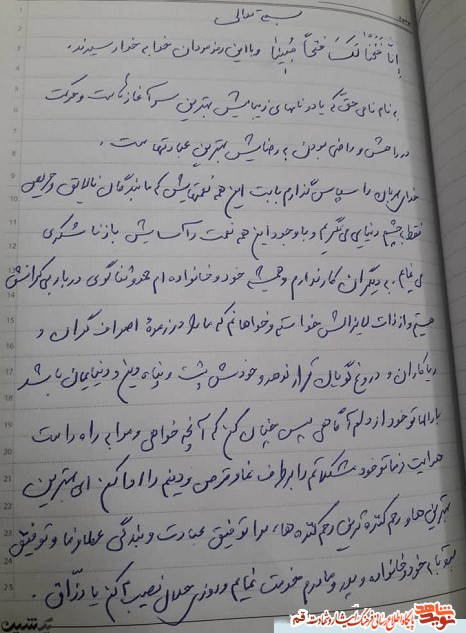 بسمه تعالی
إِنَّا فَتَحْنَا لَكَ فَتْحًا مُبِينًا و با این رمز مردان خدا به خدا رسیدند.
به نام نامی حق که یاد و نامهای زیبایش بهترین سرآغاز هاست و حرکت
در راهش و راضی بودن به رضایش بهترین عبادتهاست.
خدای مهربان را سپاس گذارم بابت این همه نعمتهایش که ما بندگان نالایق و حریص
فقط به چشم دنیایی می نگریم و با وجود این همه نعمت و آسایش باز ناشکری
می نمایم. به دیگران کار ندارم و همیشه خود و خانواده ام حمد و ثنا گوی دربار بی کرانش
هستیم و از ذات لایزالش خواسته و خواهانم که ما را در زمره اصراف گران و
ریاکاران و دروغ گویان قرار ندهد و خودش پشت و پناه دین و دنیایمان باشد
بارالها تو خود از دلم آگاهی پس چنان کن که آنچه خواهی و مرا به راه راست
هدایت نما تو خود مشکلاتم را برطرف نما و قرض و دینم را ادا کن ای بهترین
بهترین ها و رحم کننده ترین رحم کننده ها، مرا توفیق عبادت و بندگی عطا فرما و توفیق
خود و خانواده و پدر و مادرم خدمت نمایم و روزی حلال نصیب کن یا رزاق.
نوید شاهد
پایگاه اطلاع رسانی فرهنگ ایثار و شهادت قم